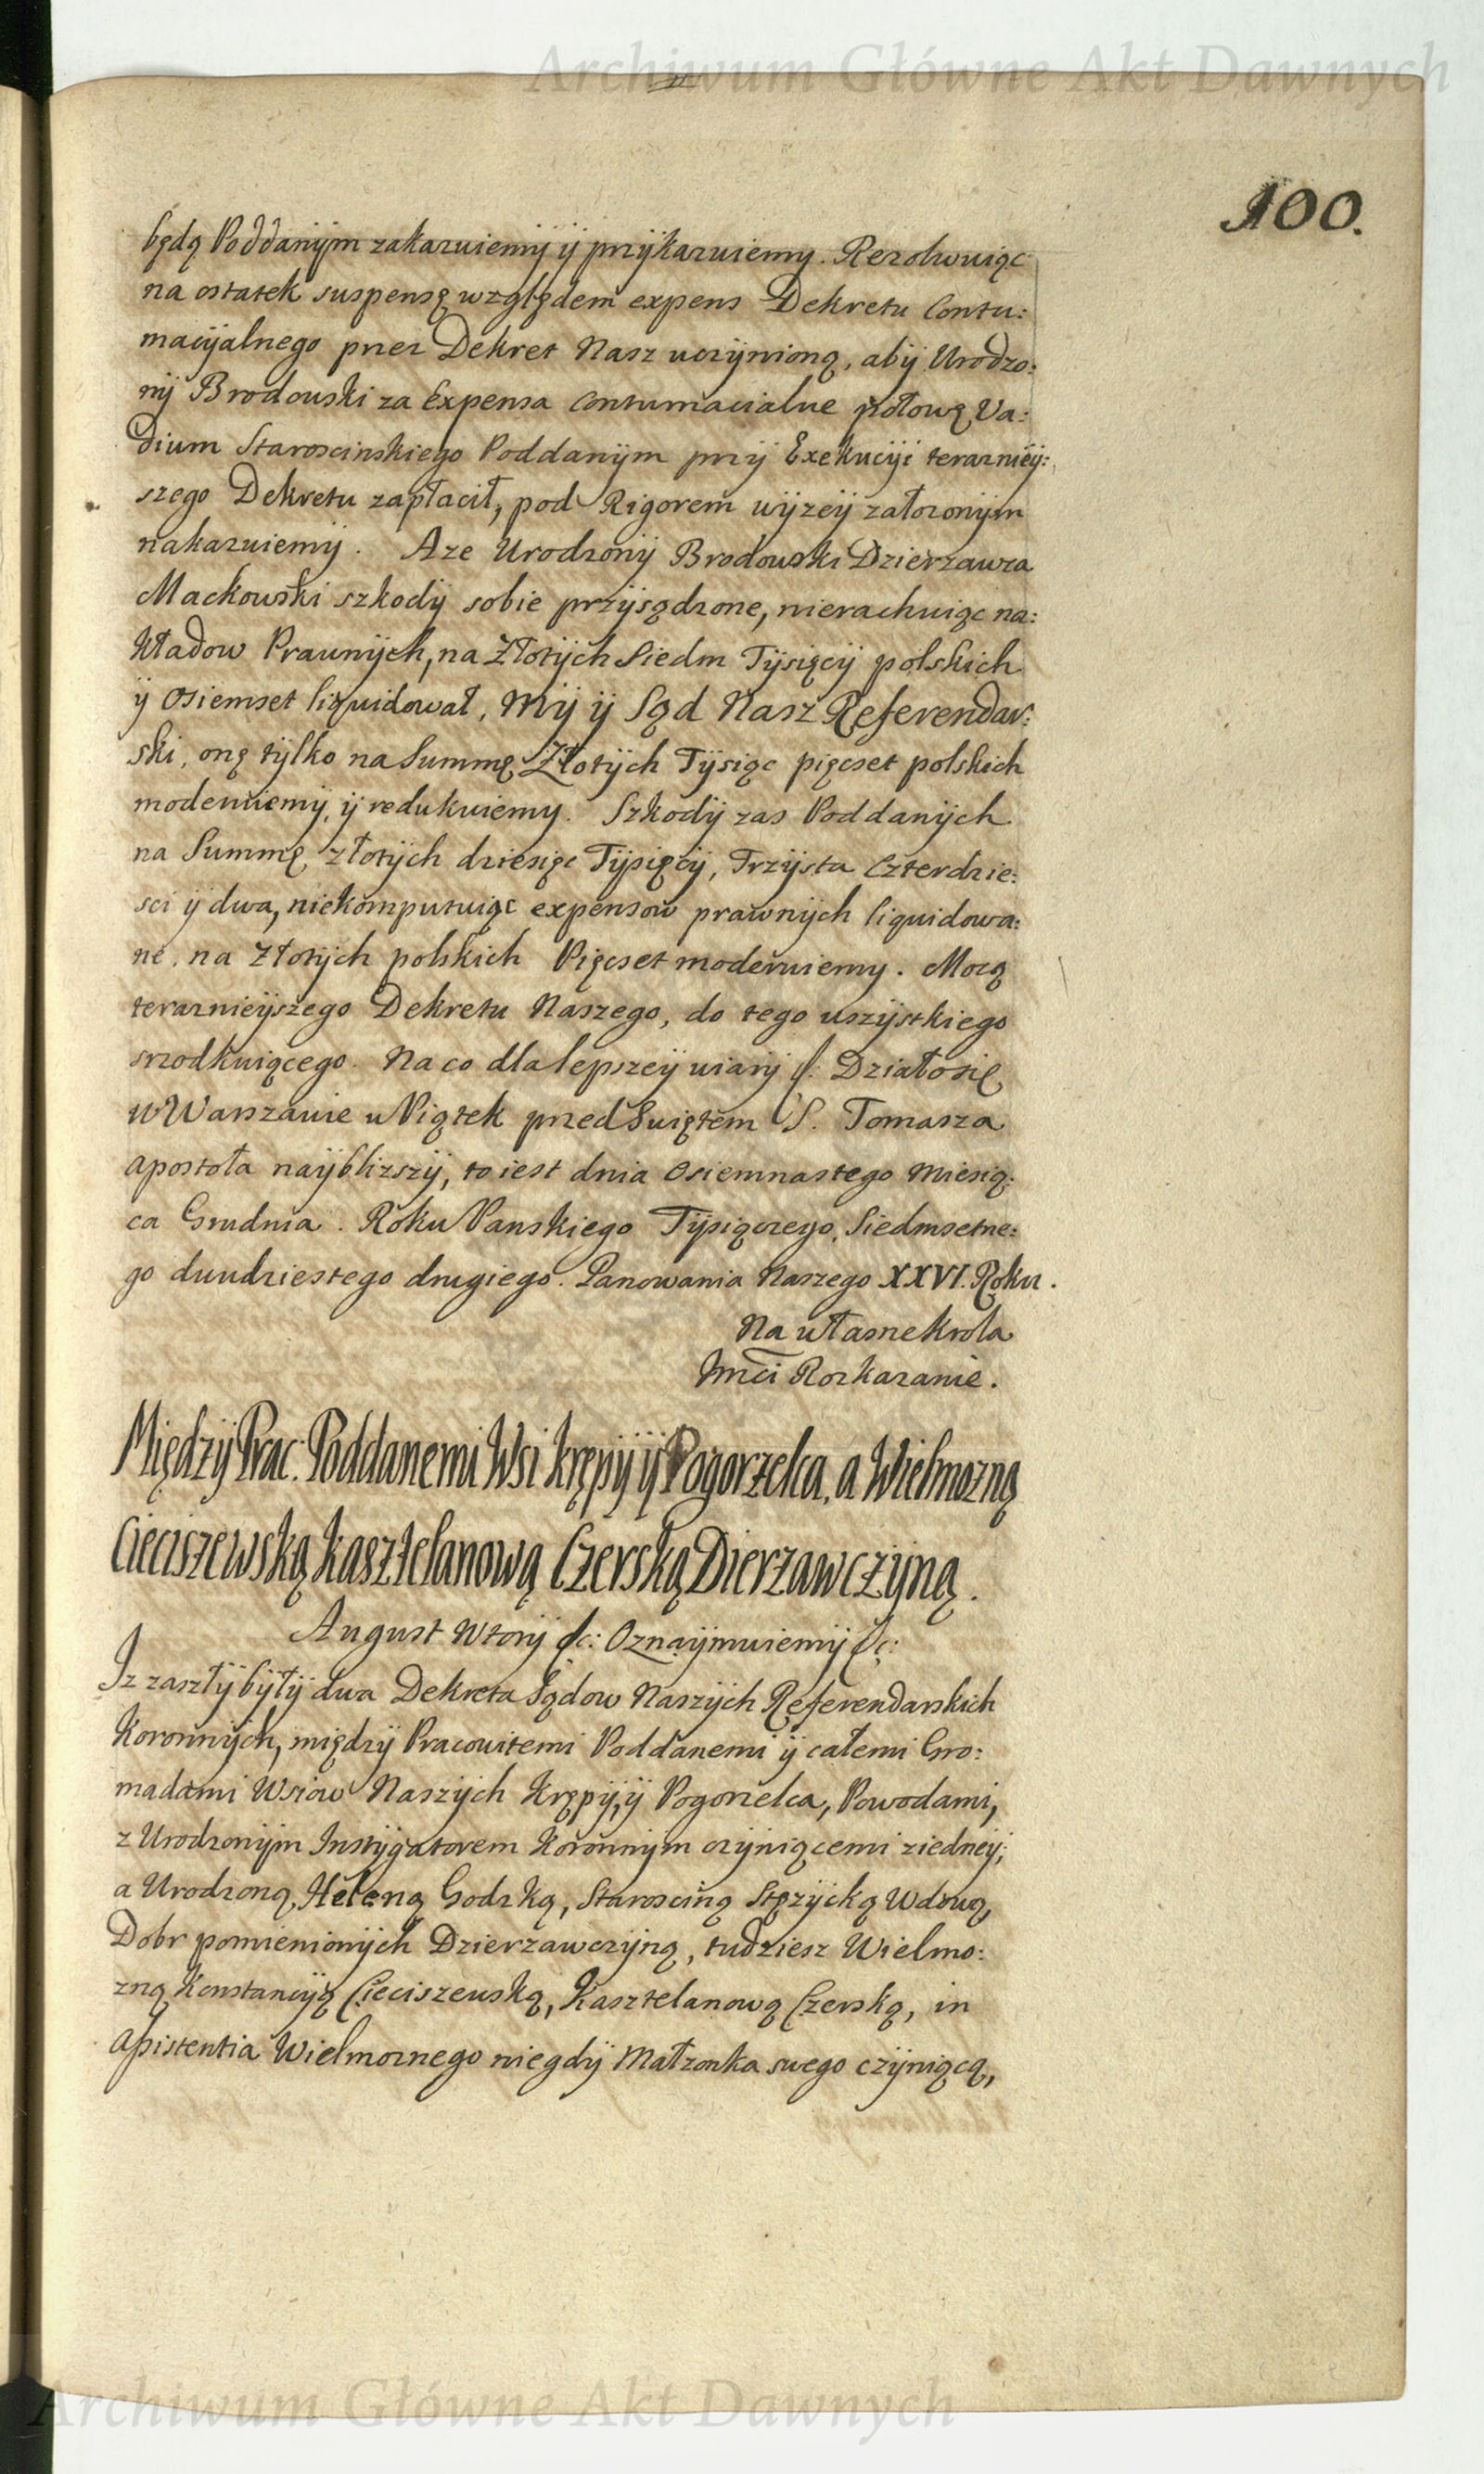 Archiwum Główne Akt Dawnych
100.
będą Poddanÿm zakazuiemÿ ÿ przÿkazuiemy. Rezolwuiąc
na ostatek suspensę względem expens Dekretu Contu:
macÿalnego przez Dekret Nasz uczÿnioną, abÿ Urodzo:
nÿ Brodowski za Expensa contumacialne połowę Va:
dium Staroscinskiego Poddanÿm przÿ Exekucÿi terazniéÿ:
szego Dekretu zapłacił, pod Rigorem wÿzeÿ załozonÿm
nakazuiemÿ. Aze Urodzonÿ Brodowski Dzierzawca
Mackowski szkodÿ sobie przÿsądzone, nierachuiąc na:
kładow Prawnÿch, na Złotÿch Siedm Tÿsięcÿ polskich
ÿ osiemset liquidował, Mÿ ÿ Sąd Nasz Referendar:
ski, onę tÿlko na Summę Złotÿch Tÿsiąc pięcset polskich
moderuiemÿ, ÿ redukuiemy. Szkodÿ zas Poddanÿch
na Summę złotÿch dziesięc Tÿsięcÿ, Trzÿsta Czterdzie:
sci ÿ dwa, niekomputuiąc expensow prawnÿch liquidowa:
ne, na Złotÿch polskich Pięcset moderuiemy. Mocą
teraznieÿszego Dekretu Naszego, do tego wszÿstkiego
srzodkuiącego. Na co dla lepszeÿ wiarÿ &: Działosię
w Warszawie w Piątek przed Swiętem S. Tomasza
Apostoła naÿblizszÿ, to iest dnia Osiemnastego Miesią:
ca Grudnia. Roku Panskiego Tÿsiącznego, Siedmsetne:
go dwudziestego drugiego. Panowania Naszego XXVI. Roku.
Na własne krola
Jmci Rozkazanie.
Międzÿ Prac: Poddanemi Wsi Krępÿ ÿ Pogorzelca, a Wielmozną
Cieciszewską Kasztelanową Czerską Dierzawczÿną.
August Wtorÿ &c: Oznaÿmuiemÿ &c:
Jz zaszłÿ bÿłÿ dwa Dekreta Sądow Naszÿch Referendarskich
Koronnÿch, międzÿ Pracowitemi Poddanemi ÿ całemi Gro:
madami Wsiow Naszÿch Krępÿ, ÿ Pogorzelca, Powodami,
z Urodzonÿm Instÿgatorem Koronnÿm czÿniącemi ziedneÿ;
a Urodzoną Heleną Godzką, Staroscing Stęzÿcką Wdową,
Dobr pomienionÿch Dzierzawczÿną, tudziesz Wielmo:
zną Konstancÿą Cieciszewską, Kasztelanową Czerską, in
Assistentia Wielmoznego niegdÿ Małzonka swego czÿniącą,
Archiwum Główne Akt Dawnych